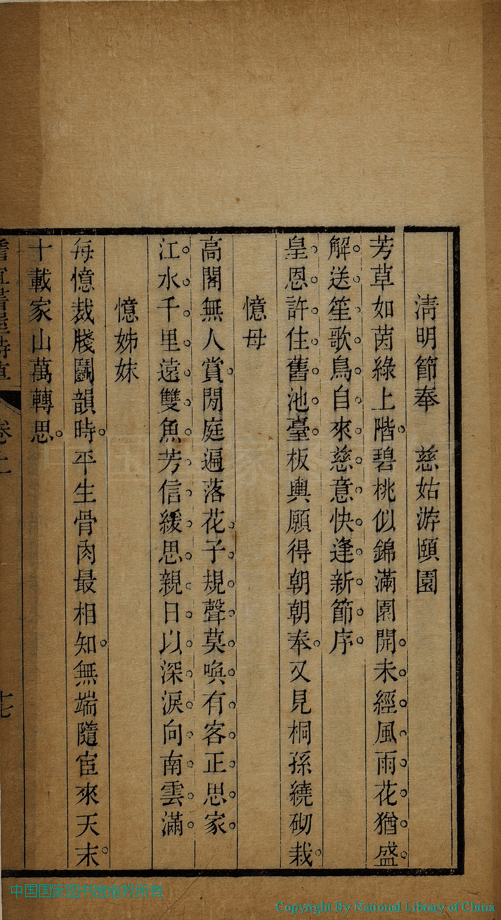 清明節奉　慈姑游頤園
芳草如茵綠上階碧桃似錦滿園開未經風雨花猶盛
解送笙歌鳥自來慈意快逢新節序
皇恩許住舊池臺板輿願得朝朝奉又見桐孫繞砌栽
憶母
高閣無人賞閒庭遍落花子規聲莫喚有客正思家
江水千里遠雙魚芳信緩思親日以深淚向南雲滿
憶姊妹
每憶裁牋鬭韻時平生骨肉最相知無端隨宦來天末
十載家山萬轉思
卷二
十七
Copyright By National Library of China